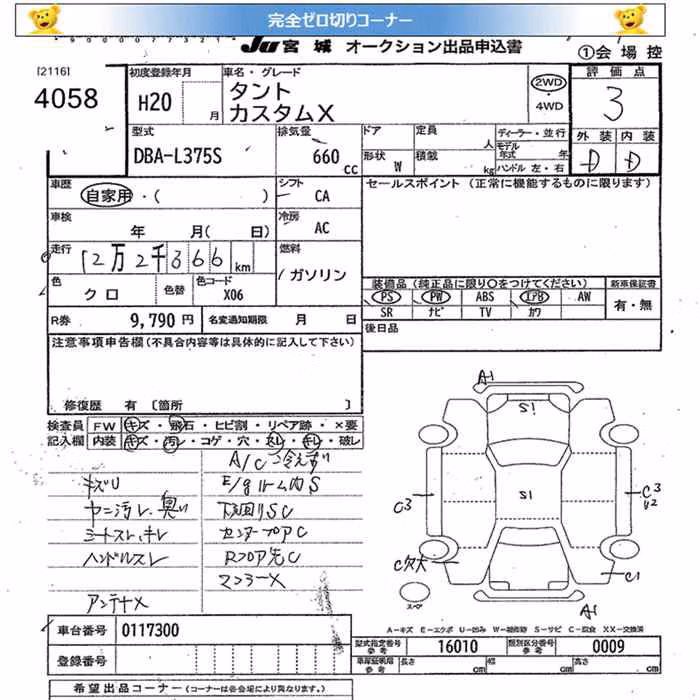 完全ゼロ切りコーナー
JU 宮城 オークション出品申込書
①会場控
[2116]
4058
初度登録年月
H20
月
車名・グレード
タント
カスタムX
2WD
4WD
評価点
3
外装 内装
D D
型式
DBA-L375S
排気量
660 CC
ドア
形状 W
定員 人
積載 kg
ディーラー・並行
モデル年式 年
ハンドル 左・右
車歴
自家用・( )
シフト
CA
セールスポイント (正常に機能するものに限ります)
車検
年 月( 日)
冷房
AC
走行
12万2千366km
燃料
ガソリン
色
クロ
色替
色コード
X06
装備品 (純正品に限り○をつけてください)
新車保証書
PS PW ABS エアB AW
SR ナビ TV カワ
有・無
R券
9,790円
名変通知期限 月 日
後日品
注意事項申告欄(不具合内容等は具体的に記入して下さい)
修復歴 有 [箇所 ]
検査員記入欄
FW キズ・飛石・ヒビ割・リペア跡・×要
内装 キズ・汚レ・コゲ・穴・スレ・キレ・破レ
A/C冷えず
キズU
E/gルーム内S
ヤニ汚レ、臭い
下回りSC
シートスレ、キレ
センターフロアC
ハンドルスレ
Rフロア先C
マフラーX
アンテナX
A1
S1
S1
C3
C3
U2
C欠大
C1
A1
スペ
A-キズ E-エクボ U-凹み W-補修跡 S-サビ C-腐食 XX-交換済
車台番号
0117300
型式指定番号 参考
16010
類別区分番号 参考
0009
登録番号
長さ cm
幅 cm
高さ cm
希望出品コーナー (コーナーは各会場により異なります。)